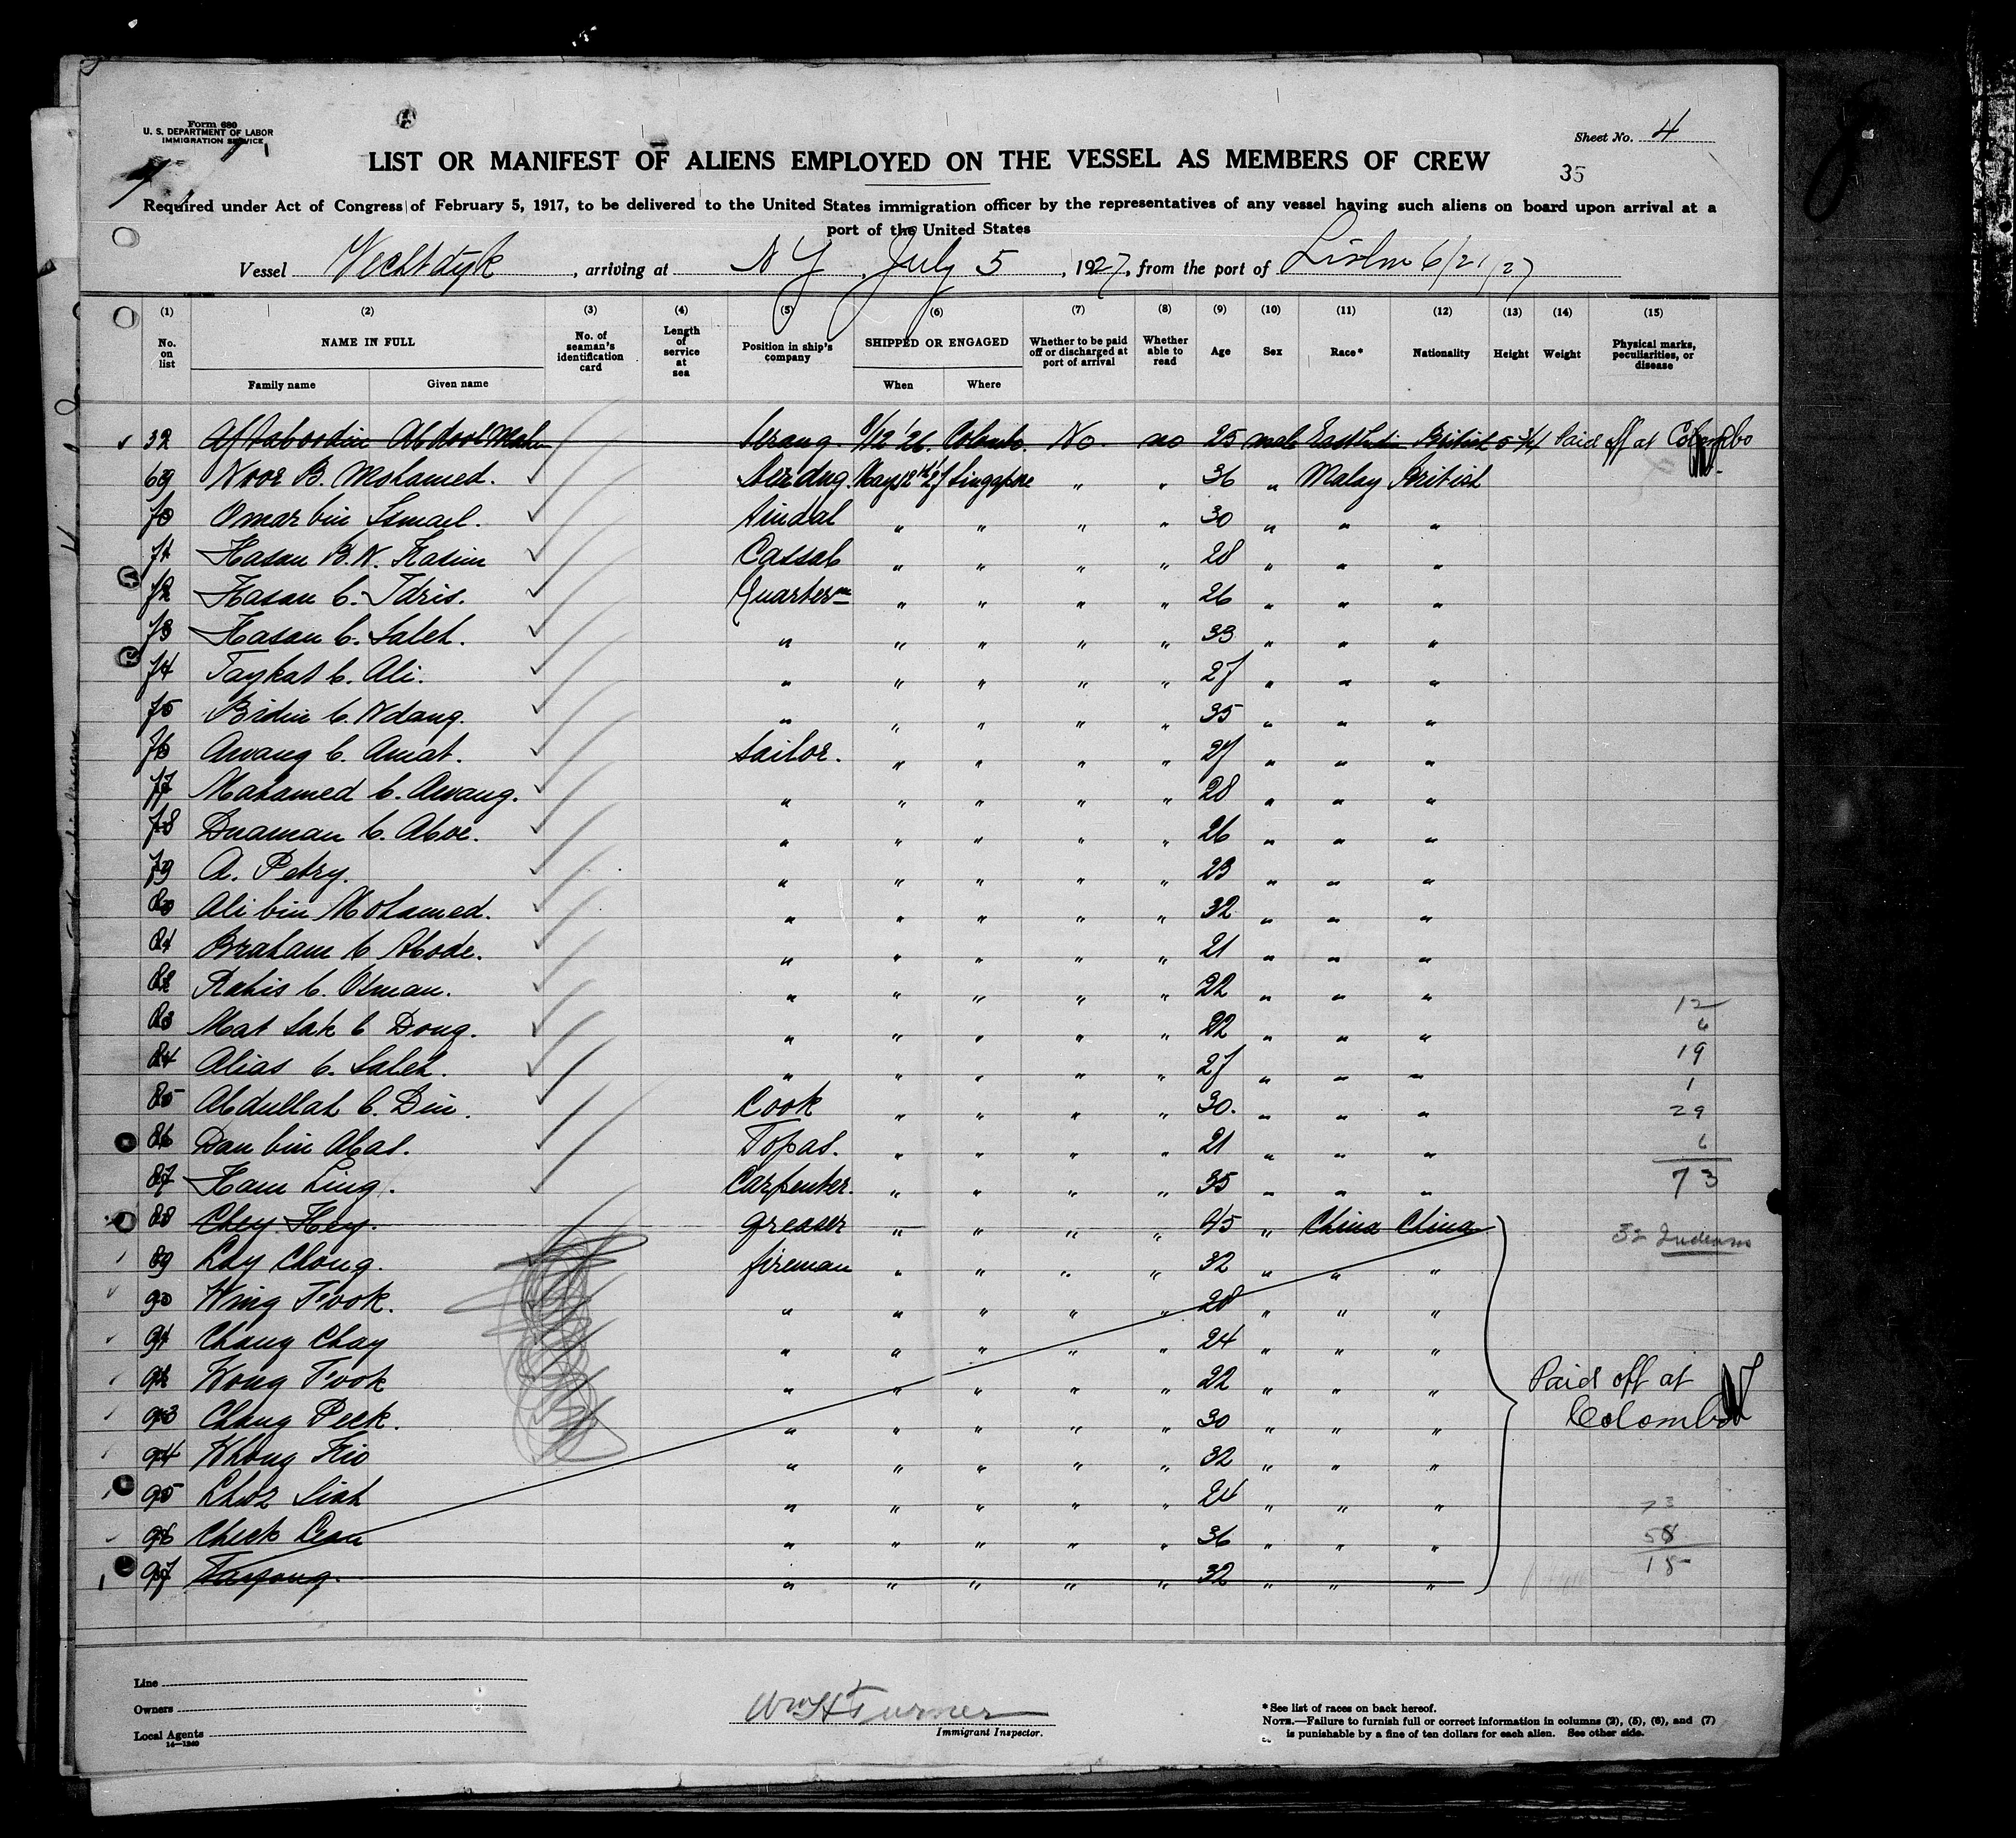 Form 680
U. S. DEPARTMENT OF LABOR
IMMIGRATION SERVICE
Sheet No. 4
LIST OR MANIFEST OF ALIENS EMPLOYED ON THE VESSEL AS MEMBERS OF CREW
35
Required under Act of Congress of February 5, 1917, to be delivered to the United States immigration officer by the representatives of any vessel having such aliens on board upon arrival at a
port of the United States
Vessel Vechtdyk, arriving at N Y July 5, 1927, from the port of Lisbn 6/21/27
(1) (2) (3) (4) (5) (6) (7) (8) (9) (10) (11) (12) (13) (14) (15)
No. on list NAME IN FULL No. of seaman's identification card Length of service at sea Position in ship's company SHIPPED OR ENGAGED Whether to be paid off or discharged at port of arrival Whether able to read Age Sex Race* Nationality Height Weight Physical marks, peculiarities, or disease
Family name Given name When Where
32 Aftaboodin Abdool Serang. 9/12 '26. Colombo. No. no 25 male British Paid off at Colombo
69 Noor B. Mohamed. Singapore " " 36 " Malay British
70 Omar bin Ismael. " " " " 30 " " "
71 Hasan B.N. Kasim Cassab " " " " 28 " " "
72 Hasan b. Idris. Quarterm " " " " 26 " " "
73 Hasan b. Saleh. " " " " " 33 " " "
74 Taykat b. Ali. " " " " " 27 " " "
75 Bidin b. Ndang. " " " " " 35 " " "
76 Awang b. Amat. Sailor. " " " " 27 " " "
77 Mahamed b. Awang. " " " " " 28 " " "
78 Dnaman b. Aboe. " " " " " 26 " " "
79 A. Petry. " " " " " 23 " " "
80 Ali bin Mohamed. " " " " " 32 " " "
81 Braham b Abode. " " " " " 21 " " "
82 Rahis b. Osman. " " " " " 22 " " "
83 Mat Sak b Dong. " " " " " 22 " " "
84 Alias b. Saleh. " " " " " 27 " " "
85 Abdullah b. Din. Cook " " " " 30. " " "
86 Dan bin Abas. Topas. " " " " 21 " " "
87 Ham Ling. Carpenter. " " " " 35 " " "
88 Chey Hey. greaser " " " " 45 " China China
89 Lay Chong. fireman " " " " 32 " " "
90 Wing Fook. " " " " " 28 " " "
91 Chang Chay " " " " " 24 " " "
92 Wong Fook " " " " " 22 " " "
93 Chang Peck. " " " " " 30 " " "
94 Whong Kio " " " " " 32 " " "
95 Siah " " " " " 24 " " "
96 Cheek Lean " " " " " 36 " " "
97 " " " " " 32 " " "
12
6
19
1
29
6
73
32 Indians
Paid off at
Colombo
73
58
15
Line
Owners
Local Agents
14—1240
Wm H Turner
Immigrant Inspector.
* See list of races on back hereof.
NOTE.—Failure to furnish full or correct information in columns (2), (5), (6), and (7)
is punishable by a fine of ten dollars for each alien. See other side.